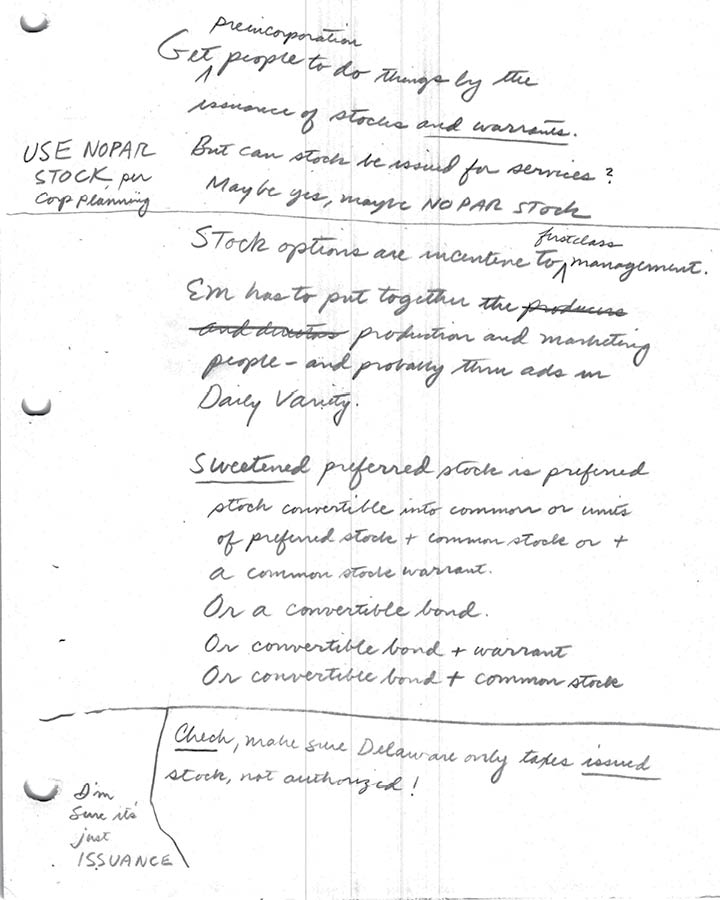 preincorporation
Get people to do things by the
issuance of stocks and warrants.
But can stock be issued for services?
Maybe yes, maybe NOPAR STOCK
USE NOPAR
STOCK, per
Corp Planning
first class
Stock options are incentive to management.
EM has to put together the producers
and directors production and marketing
people – and probably thru ads in
Daily Variety.
Sweetened preferred stock is preferred
stock convertible into common or units
of preferred stock + common stock or +
a common stock warrant.
Or a convertible bond.
Or convertible bond + warrant
Or convertible bond + common stock
Check, make sure Delaware only taxes issued
stock, not authorized!
I'm
Sure it's
just
ISSUANCE